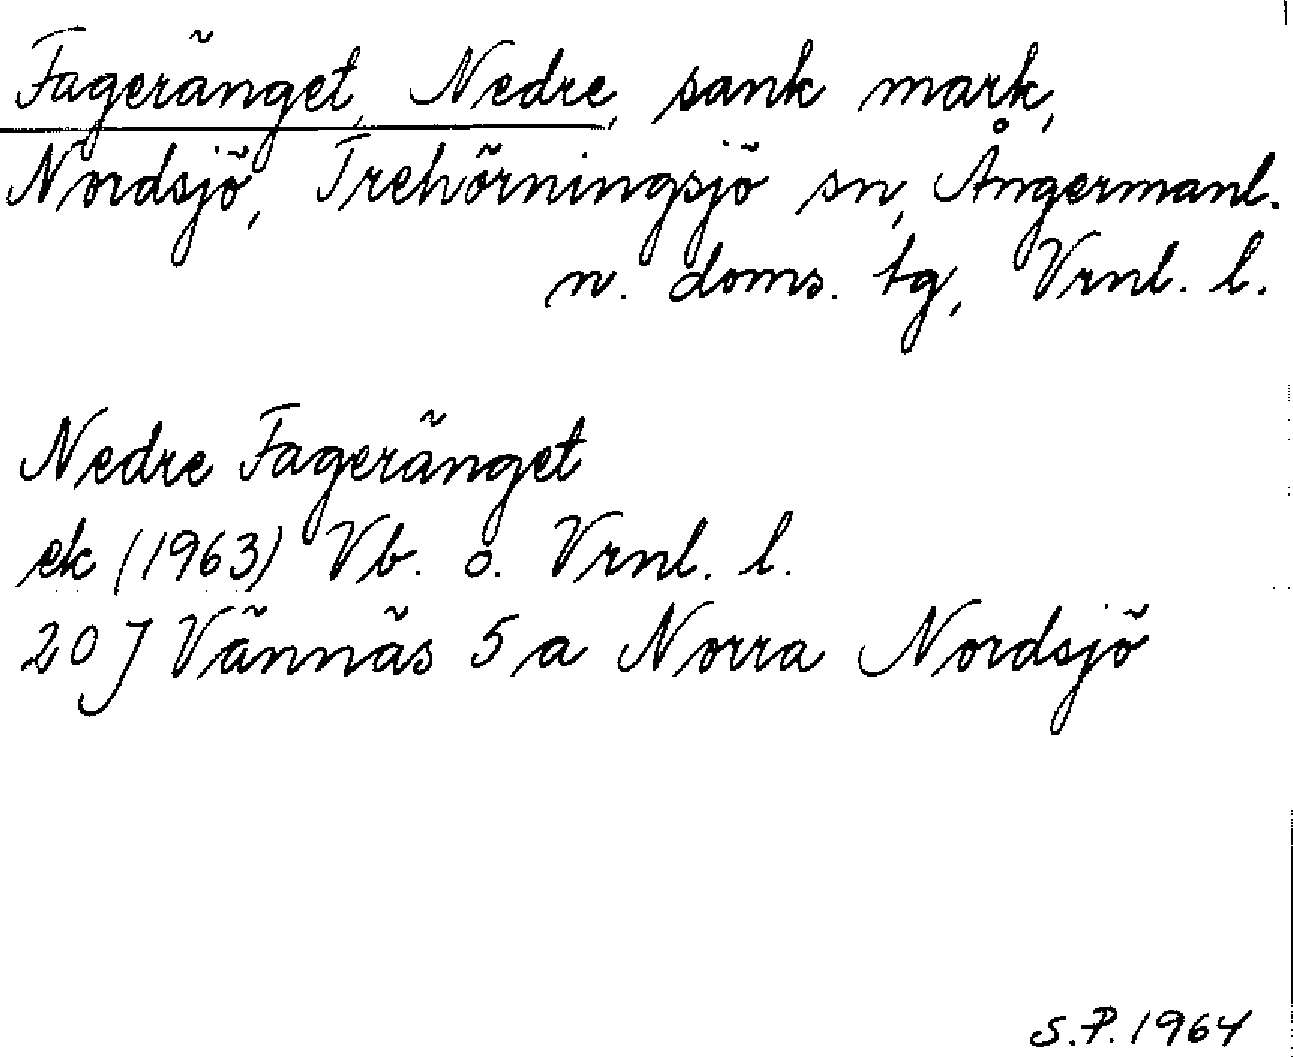 Fageränget, Nedre, sank mark,
Nordsjö, Trehörningsjö sn, Ångermanl.
n. doms. tg, Vrnl. l.
Nedre Fageränget
ek (1963) Vb. o. Vrnl. l.
20 J Vännäs 5 a Norra Nordsjö
S.P. 1964